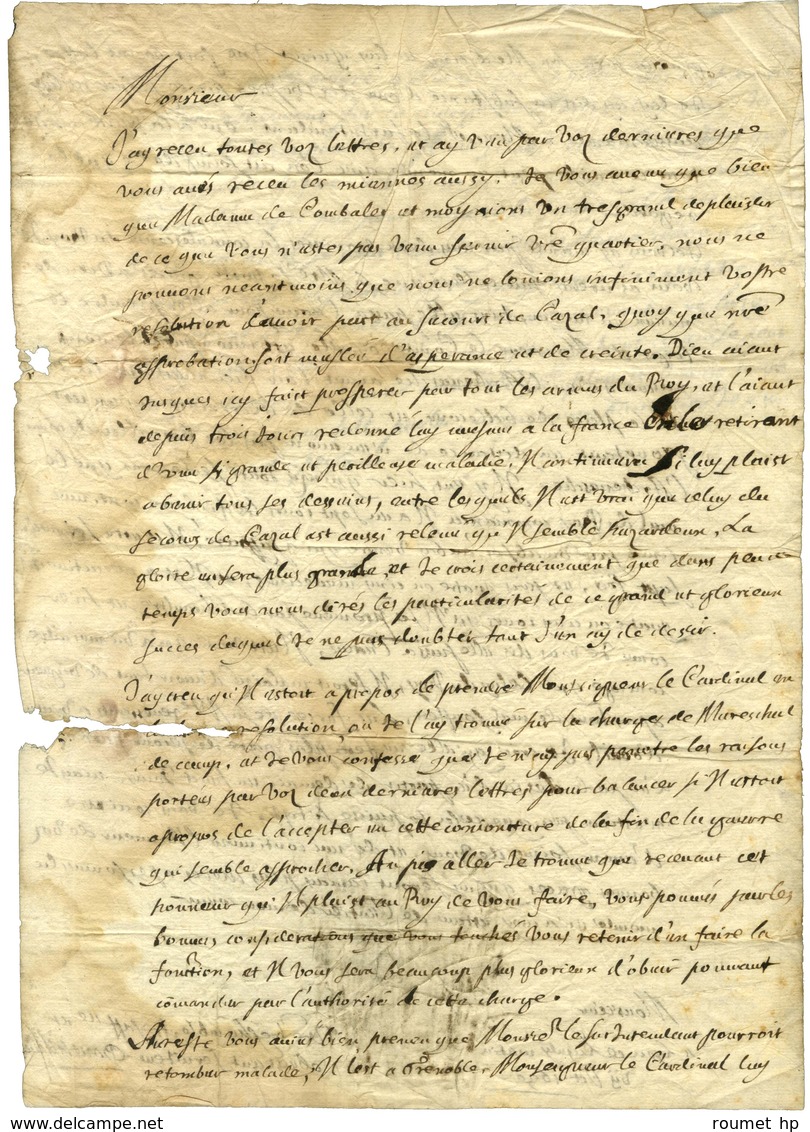 Monsieur
J'ay receu toutes voz lettres, et ay veu par voz dernieres que
vous avés receu les miennes aussy. Je vous avoue que bien
que Madame de Combalet et moy aions un tresgrand deplaisir
de ce que vous n'estes pas venu servir vre quartier, nous ne
pouvons neantmoins que nous ne louions infiniment vostre
resolution d'avoir part au secours de Cazal, quoy que nre
approbation soit meslée d'esperance et de creinte. Dieu aiant
jusques icy faict prosperer par tout les armes du Roy, et l'aiant
depuis trois jours redonné luy mesme a la france en le retirant
d'une si grande et perilleuse maladie, Il continuera s'il luy plaist
a benir tous ses desseins, entre lesquels Il est vrai que celuy du
secours de Cazal est aussi relevé qu'Il semble hazardeux, La
gloire en sera plus grande, et Je crois certainement que dans peu de
temps vous nous dirés les particularités de ce grand et glorieux
succes duquel Je ne puis doubter tant J'en ay de desir.
J'ay creu qu'Il estoit a propos de prendre Monseigneur le Cardinal en
resolution, ou Je l'ay trouvé sur la charge de Mareschal
de camp, et Je vous confesse que Je n'ay peu les raisons
portées par voz deux dernieres lettres pour balancer si Il estoit
apropos de l'accepter en cette conioncture de la fin de la guerre
qui semble approcher. Au pis aller Je trouve que recevant cet
honneur qu'Il plaist au Roy de vous faire, vous pouvés par les
bonnes considerations que vous touchés vous retenir d'en faire la
fonction, et Il vous sera beaucoup plus glorieux d'obeir pouvant
comander par l'authorité de cette charge.
Au reste vous aviés bien preveu que Monsier le surIntendant pourroit
retomber malade, Il l'est a Grenoble. Monseigneur le Cardinal luy
roumet hp